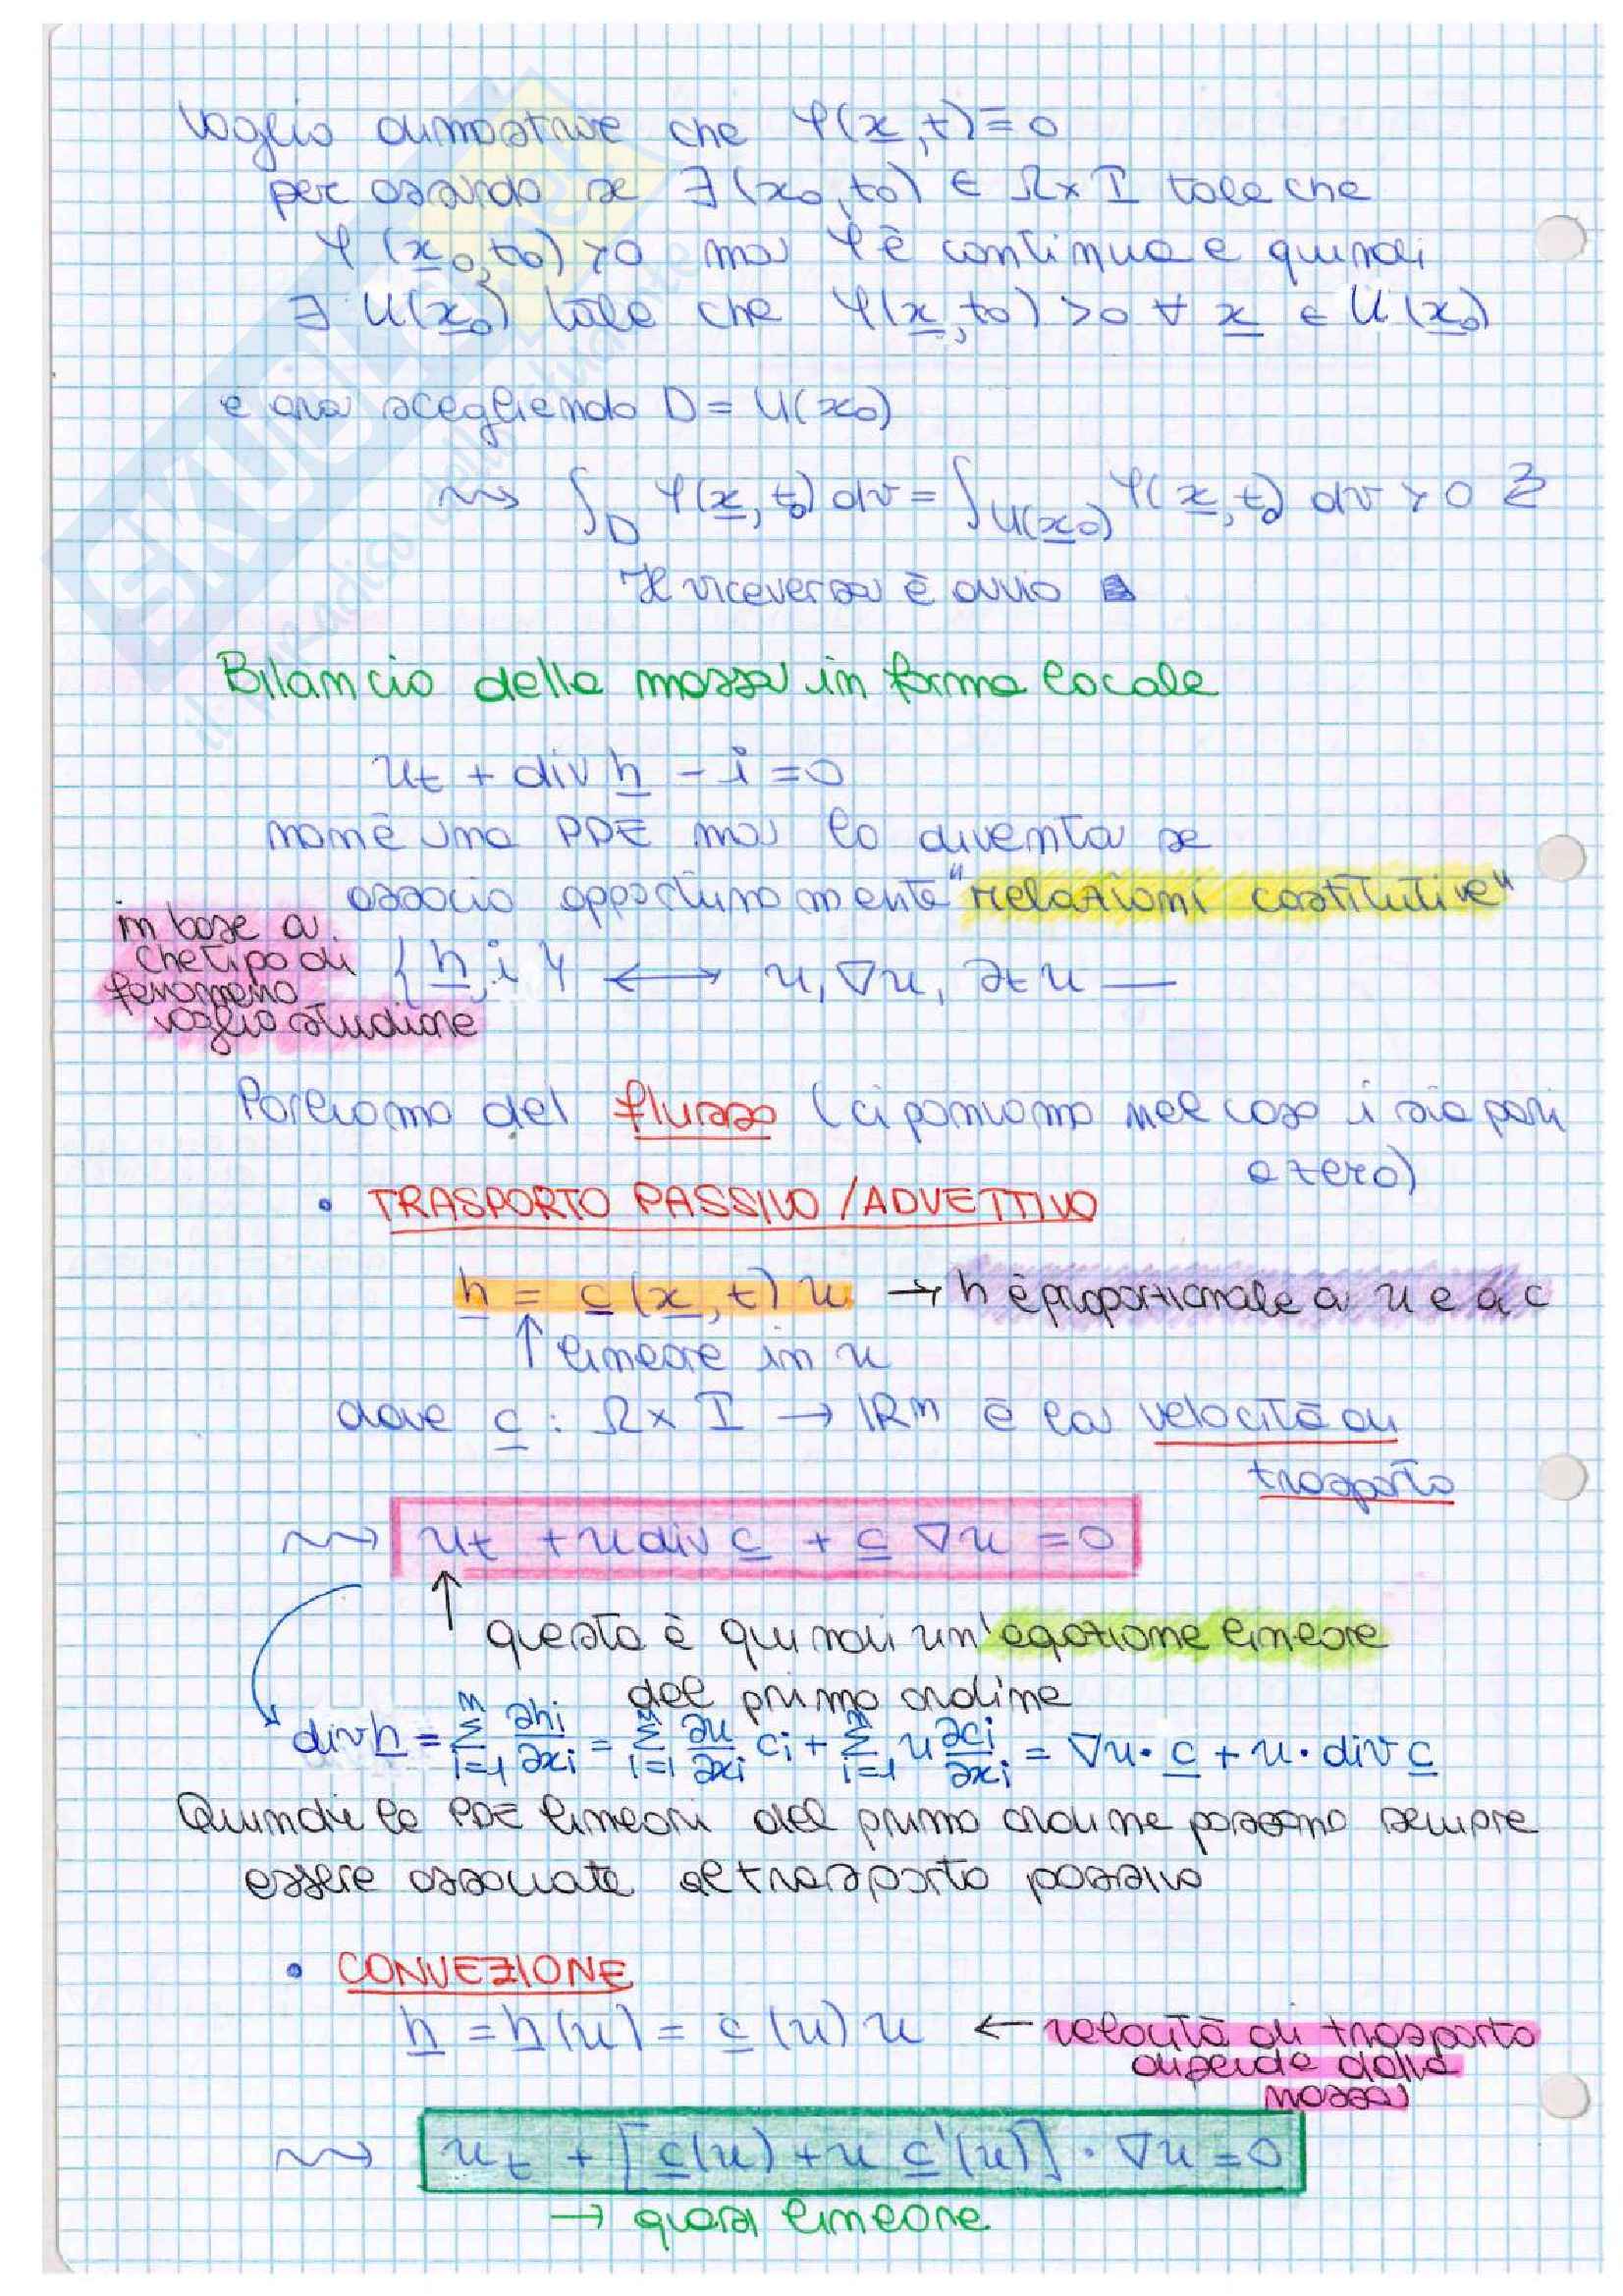 Voglio dimostrare che φ(x,t)=0
per assurdo se ∃(x₀,t₀) ∈ Ω×I tale che
φ(x₀,t₀)>0 ma φ è continua e quindi
∃ U(x₀) tale che φ(x,t₀)>0 ∀ x ∈ U(x₀)
e ora scegliendo D = U(x₀)
⇝ ∫_D φ(x,t₀) dv = ∫_U(x₀) φ(x,t₀) dv > 0 ↯
Il viceversa è ovvio ■
Bilancio della massa in forma locale
u_t + div h - i = 0
non è una PDE ma lo diventa se
associo opportunamente "relazioni costitutive"
in base a
che tipo di
fenomeno
voglio studiare
{h, i} ⟷ u, ∇u, ∂t u —
Parliamo del flusso (ci poniamo nel caso i sia pari
a zero)
• TRASPORTO PASSIVO/ADVETTIVO
h = c(x,t) u → h è proporzionale a u e a c
↑ lineare in u
dove c : Ω×I → ℝⁿ è la velocità di
trasporto
⇝ u_t + u div c + c ∇u = 0
↑ questa è quindi un'eqazione lineare
del primo ordine
div h = Σ_{i=1}^n ∂hi/∂xi = Σ_{i=1}^n ∂u/∂xi ci + Σ_{i=1}^n u ∂ci/∂xi = ∇u · c + u · div c
Quindi le PDE lineari del primo ordine possono sempre
essere associate al trasporto passivo
• CONVEZIONE
h = h(u) = c(u) u ← velocità di trasporto
dipende dalla
massa
⇝ u_t + [c(u) + u c'(u)] · ∇u = 0
→ quasi lineare
SKUOLA.net
il paradiso dello studente